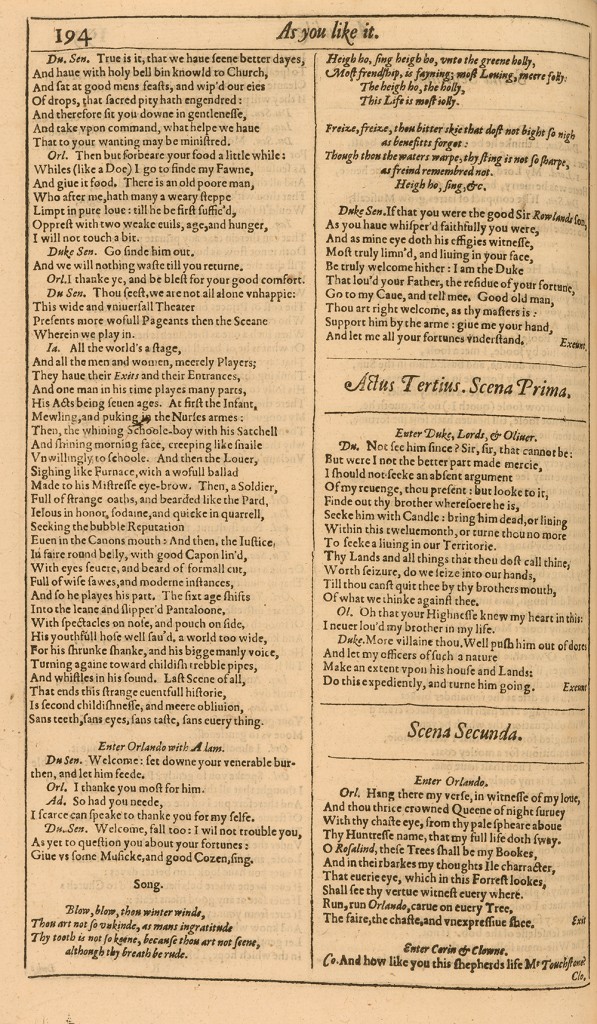 194
As you like it.
Du. Sen. True is it, that we haue seene better dayes,
And haue with holy bell bin knowld to Church,
And sat at good mens feasts, and wip'd our eies
Of drops, that sacred pity hath engendred:
And therefore sit you downe in gentlenesse,
And take vpon command, what helpe we haue
That to your wanting may be ministred.
Orl. Then but forbeare your food a little while:
Whiles (like a Doe) I go to finde my Fawne,
And giue it food. There is an old poore man,
Who after me, hath many a weary steppe
Limpt in pure loue: till he be first suffic'd,
Opprest with two weake euils, age, and hunger,
I will not touch a bit.
Duke Sen. Go finde him out,
And we will nothing waste till you returne.
Orl. I thanke ye, and be blest for your good comfort.
Du Sen. Thou seest, we are not all alone vnhappie:
This wide and vniuersall Theater
Presents more wofull Pageants then the Sceane
Wherein we play in.
Ia. All the world's a stage,
And all the men and women, meerely Players;
They haue their Exits and their Entrances,
And one man in his time playes many parts,
His Acts being seuen ages. At first the Infant,
Mewling, and puking in the Nurses armes:
Then, the whining Schoole-boy with his Satchell
And shining morning face, creeping like snaile
Vnwillingly to schoole. And then the Louer,
Sighing like Furnace, with a wofull ballad
Made to his Mistresse eye-brow. Then, a Soldier,
Full of strange oaths, and bearded like the Pard,
Ielous in honor, sodaine, and quicke in quarrell,
Seeking the bubble Reputation
Euen in the Canons mouth: And then, the Iustice,
In faire round belly, with good Capon lin'd,
With eyes seuere, and beard of formall cut,
Full of wise sawes, and moderne instances,
And so he playes his part. The sixt age shifts
Into the leane and slipper'd Pantaloone,
With spectacles on nose, and pouch on side,
His youthfull hose well sau'd, a world too wide,
For his shrunke shanke, and his bigge manly voice,
Turning againe toward childish trebble pipes,
And whistles in his sound. Last Scene of all,
That ends this strange euentfull historie,
Is second childishnesse, and meere obliuion,
Sans teeth, sans eyes, sans taste, sans euery thing.
Enter Orlando with Adam.
Du Sen. Welcome: set downe your venerable bur-
then, and let him feede.
Orl. I thanke you most for him.
Ad. So had you neede,
I scarce can speake to thanke you for my selfe.
Du. Sen. Welcome, fall too: I wil not trouble you,
As yet to question you about your fortunes:
Giue vs some Musicke, and good Cozen, sing.
Song.
Blow, blow, thou winter winde,
Thou art not so vnkinde, as mans ingratitude
Thy tooth is not so keene, because thou art not seene,
although thy breath be rude.
Heigh ho, sing heigh ho, vnto the greene holly,
Most frendship, is fayning; most Louing, meere folly:
The heigh ho, the holly,
This Life is most iolly.
Freize, freize, thou bitter skie that dost not bight so nigh
as benefitts forgot:
Though thou the waters warpe, thy sting is not so sharpe,
as freind remembred not.
Heigh ho, sing, &c.
Duke Sen. If that you were the good Sir Rowlands son,
As you haue whisper'd faithfully you were,
And as mine eye doth his effigies witnesse,
Most truly limn'd, and liuing in your face,
Be truly welcome hither: I am the Duke
That lou'd your Father, the residue of your fortune,
Go to my Caue, and tell mee. Good old man,
Thou art right welcome, as thy masters is:
Support him by the arme: giue me your hand,
And let me all your fortunes vnderstand. Exeunt.
Actus Tertius. Scena Prima.
Enter Duke, Lords, & Oliuer.
Du. Not see him since? Sir, sir, that cannot be:
But were I not the better part made mercie,
I should not seeke an absent argument
Of my reuenge, thou present: but looke to it,
Finde out thy brother wheresoere he is,
Seeke him with Candle: bring him dead, or liuing
Within this tweluemonth, or turne thou no more
To seeke a liuing in our Territorie.
Thy Lands and all things that thou dost call thine,
Worth seizure, do we seize into our hands,
Till thou canst quit thee by thy brothers mouth,
Of what we thinke against thee.
Ol. Oh that your Highnesse knew my heart in this:
I neuer lou'd my brother in my life.
Duke. More villaine thou. Well push him out of dores
And let my officers of such a nature
Make an extent vpon his house and Lands:
Do this expediently, and turne him going. Exeunt
Scena Secunda.
Enter Orlando.
Orl. Hang there my verse, in witnesse of my loue,
And thou thrice crowned Queene of night suruey
With thy chaste eye, from thy pale spheare aboue
Thy Huntresse name, that my full life doth sway.
O Rosalind, these Trees shall be my Bookes,
And in their barkes my thoughts Ile charracter,
That euerie eye, which in this Forrest lookes,
Shall see thy vertue witnest euery where.
Run, run Orlando, carue on euery Tree,
The faire, the chaste, and vnexpressiue shee. Exit
Enter Corin & Clowne.
Co. And how like you this shepherds life Mr Touchstone?
Clo.